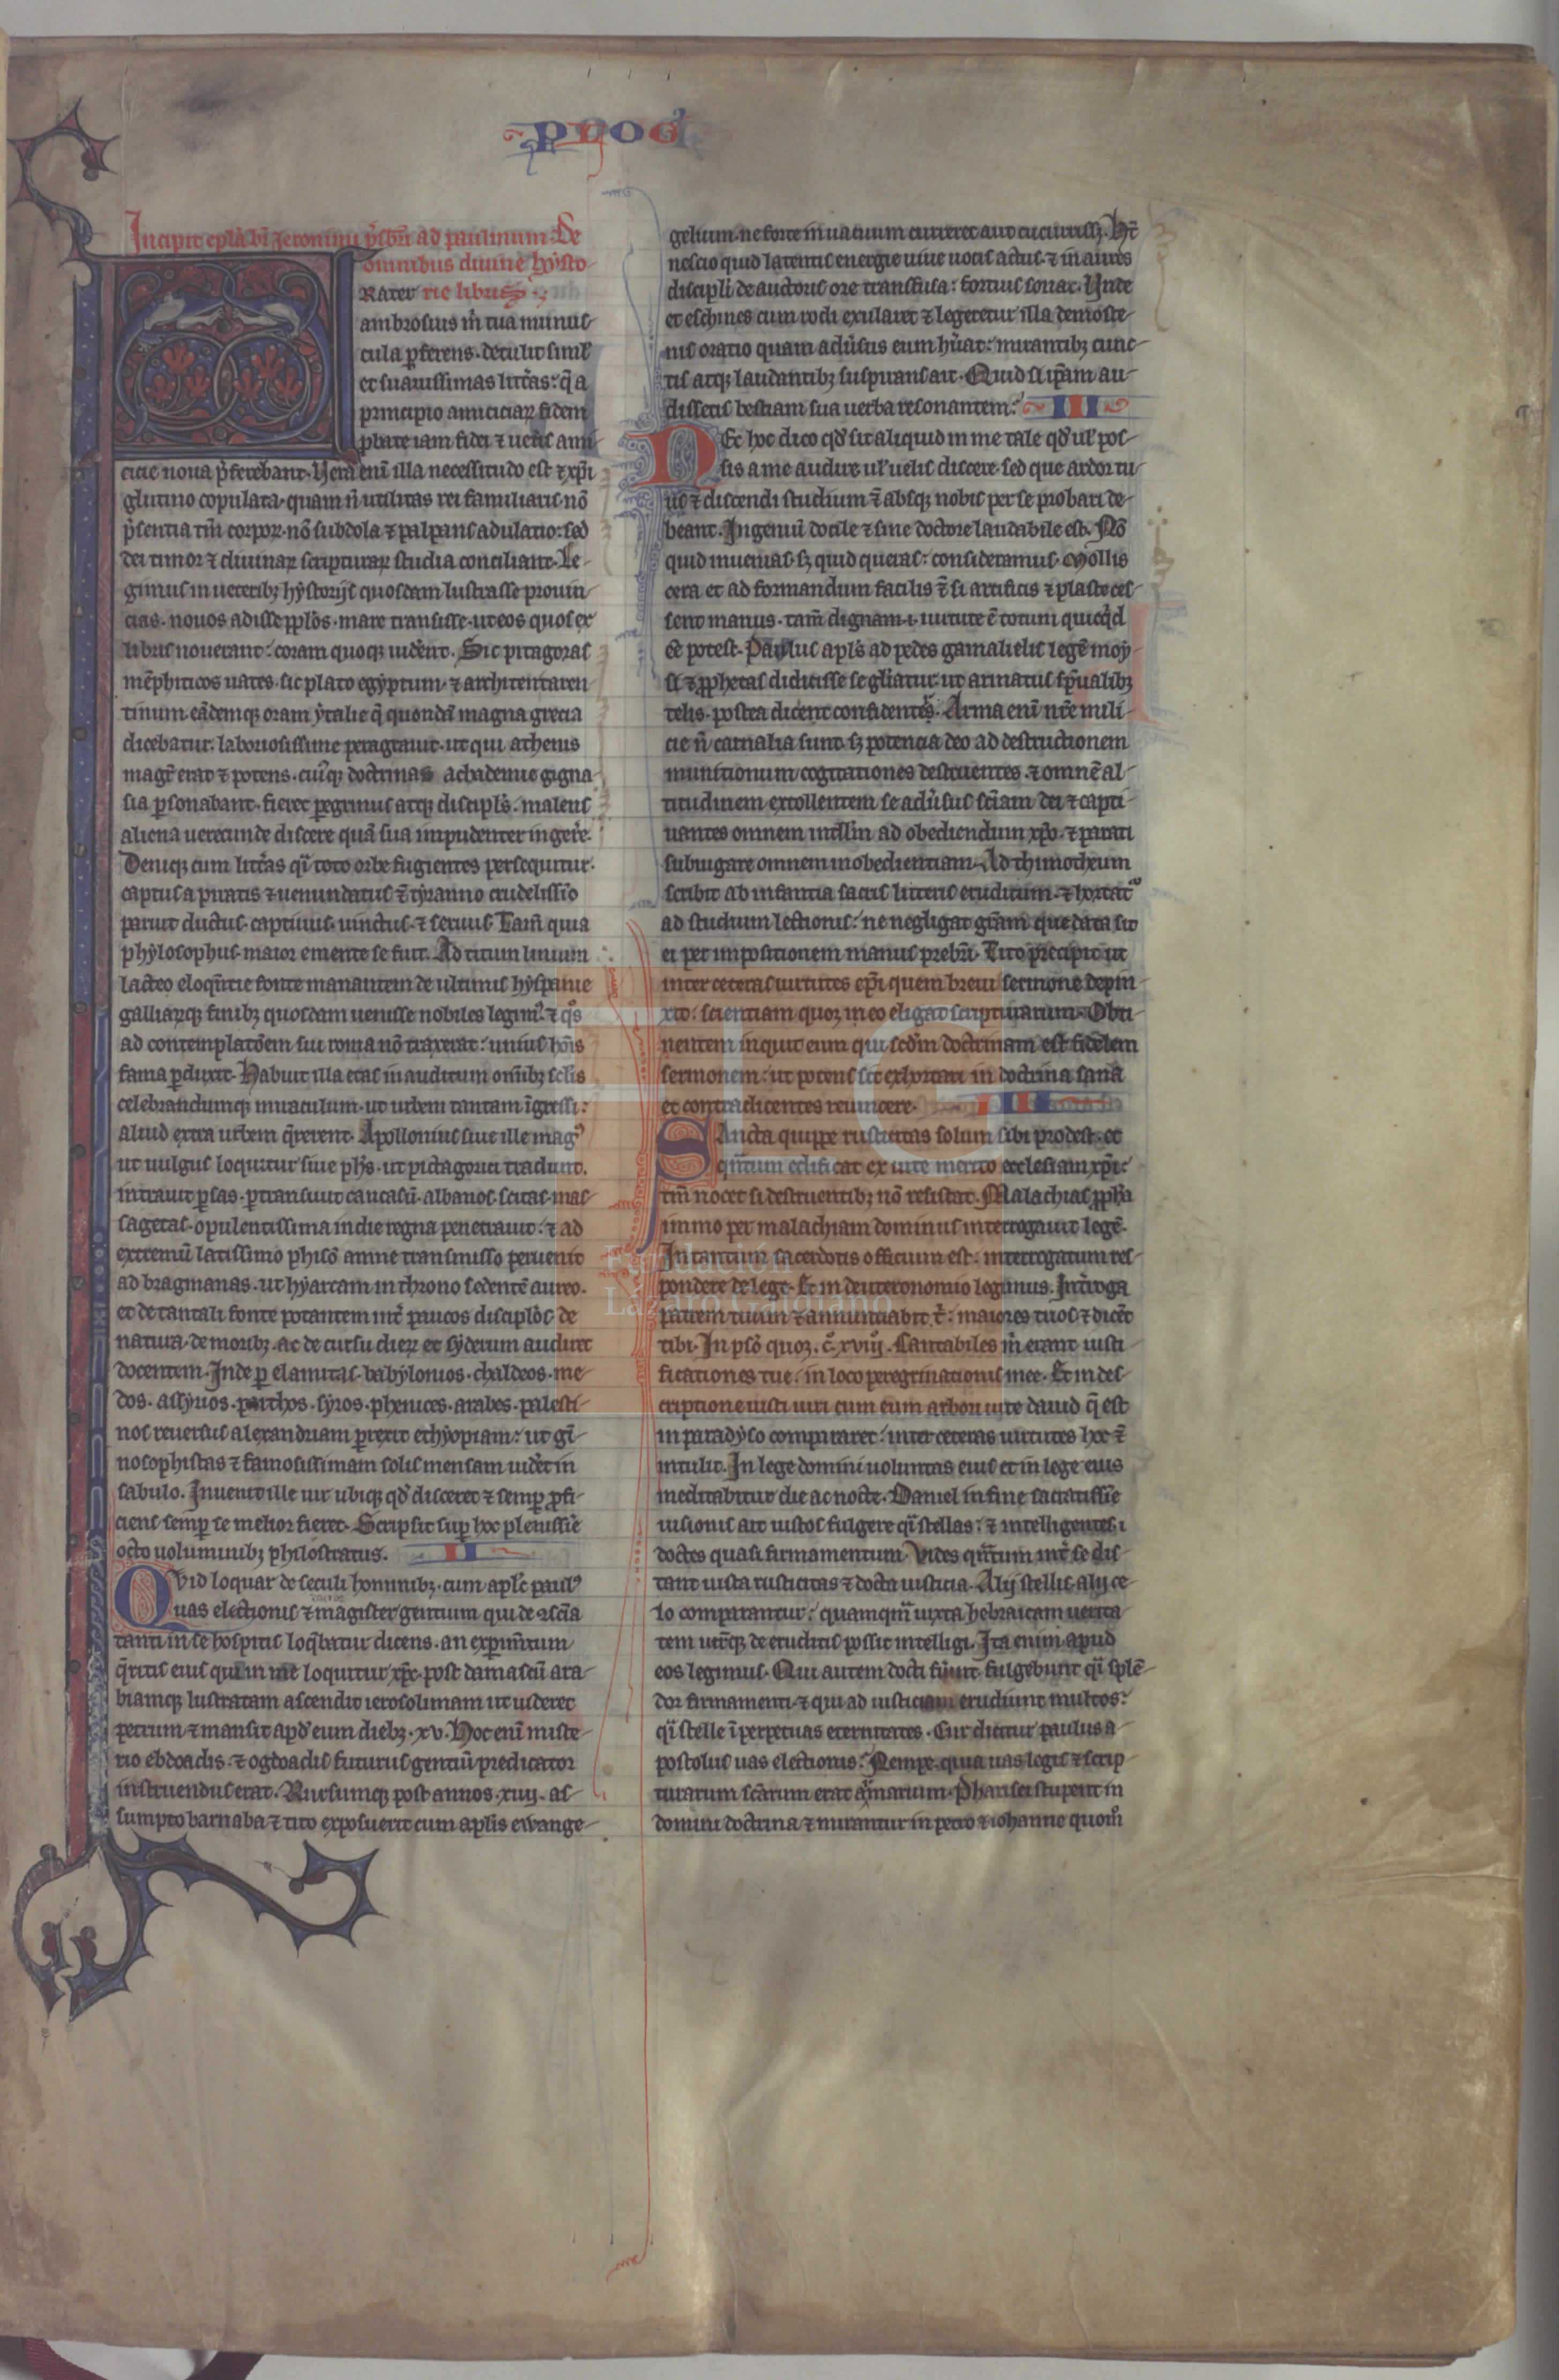 prod
Incipit epla bi Jeronimi p̄sbr̄i ad paulinum. De
omnibus diuine hẏsto
Rater rie libris
ambrosius m̄ tua munus
cula ꝑferens. detulit simł
et suauissimas litt̄as: q̄ a
principio amiciciaꝝ fidem
ꝓbate iam fidei ⁊ uet̄is ami
cicie noua p̄ferebant. Vera enī illa necessitudo est ⁊ xp̄i
glutino copulata. quam n̄ utilitas rei familiaris. nō
p̄sentia tm̄ corporꝝ. nō subdola ⁊ palpans adulatio: sed
dei timor ⁊ diuinaꝝ scripturaꝝ studia conciliant. Le
gimus in ueteribꝫ hẏstorijs quosdam lustrasse prouin
cias. nouos adisse ꝓplōs. mare transisse. ut eos quos ex
libris nouerant: coram quoqꝫ uidēnt. Sic pitagoras
mēphiticos uates. sic plato egẏptum. ⁊ architentaren
tinum eādemqꝫ oram ẏtalie q̄ quondā magna grecia
dicebatur. laboriosissime peragrauit. ut qui athenis
magr̄ erat ⁊ potens. cuiꝰqꝫ doctrinas achademie gigna
sia ꝑsonabant. fieret ꝑegrinus atqꝫ discipłs. malens
aliena uerecunde discere quā sua impudenter ingerē.
Deniqꝫ cum litt̄as q̄i toto orbe fugientes persequitur.
captus a piratis ⁊ uenundatus ⁊ tẏranno crudelissīo
paruit ductus. captiuus. uinctus. ⁊ seruus. Tam̄ quia
phẏlosophus. maior emente se fuit. Ad titum liuium
lacteo eloq̄ntie fonte manantem de ultimis hẏspanie
galliaꝝqꝫ finibꝫ quosdam uenisse nobiles legimꝰ. ⁊ q̊s
ad contemplatōem sui roma nō traxerat: unius hoīs
fama ꝑduxit. Habuit illa etas inauditum omībꝫ sclīs
celebrandumqꝫ miraculum. ut urbem tantam īgressi:
aliud extra urbem q̄rerent. Apollonius siue ille magꝰ
ut uulgus loquitur siue phs̄. ut pictagorici tradunt.
intrauit ꝑsas. ꝑtransiuit caucasū. albanos. scitas. mas
sagetas. opulentissima indie regna penetrauit: ⁊ ad
extremū latissimo phisō amne transmisso peruenit
ad bragmanas. ut hẏarcam in throno sedentē aureo.
et de tantali fonte potantem int̄ paucos disciplōs de
natura. de moribꝫ. ac de cursu dieꝝ et sẏderum audiret
docentem. Inde ꝑ elamitas. babẏlonios. chaldeos. me
dos. assẏrios. parthos. sẏros. phenices. arabes. palesti
nos reuersus alexandriam ꝑrexit ethẏopiam: ut gī
nosophistas ⁊ famosissimam solis mensam uidēt in
sabulo. Inuenit ille uir ubiqꝫ qd̄ disceret ⁊ semꝑ ꝓfi
ciens semꝑ se melior fieret. Scripsit suꝑ hoc plenissīe
octo uoluminibꝫ philostratus. II
Qvid loquar de seculi hominibꝫ. cum apłs paulꝰ
uas electionis ⁊ magister gentium qui de ꝯscīa
tanti in se hospitis loq̄batur dicens. an experimētum
q̄ritis eius qui in me loquitur xp̄c. post damascū ara
biamqꝫ lustratam ascendit ierosolimam ut uideret
petrum ⁊ mansit apd̄ eum diebꝫ. xv. Hoc enī miste
rio ebdoadis. ⁊ ogdoadis futurus gentiū predicator
instruendus erat. Rursumqꝫ post annos. xiiij. as
sumpto barnaba ⁊ tito exposuerit cum aplīs ewange
gelium. ne forte in uacuum curreret aut cucurrissꝫ. Ht̄
nescio quid latentis energie uiue uocis actus. ⁊ in aures
discipłi de auctoris ore transfusa: fortius sonat. Vnde
et eschines cum rodi exularet ⁊ legeretur illa demoste
nis oratio quam adu̇sus eum hu̇at: mirantibꝫ cunc
tis atqꝫ laudantibꝫ suspirans ait. Quid si ip̄am au
dissetis bestiam sua uerba resonantem: III
NEc hoc dico qd̄ sit aliquid in me tale qd̄ uł pos
sis a me audire uł uelis discere. sed que ardor tu
us ⁊ discendi studium ⁊ absqꝫ nobis per se probari de
beant. Ingeniū docile ⁊ sine doctore laudabile est. Nō
quid inuenias. sꝫ quid queras: consideramus. Mollis
cera et ad formandum facilis ⁊ si artificis ⁊ plaste ces
sent manus. tam̄ dignam. i. uirtute ē totum quicq̇d
ēē potest. Paulus apłs ad pedes gamalielis legē moẏ
si ⁊ ꝓphetas didicisse se gl̄iatur. ut armatus sp̄ualibꝫ
telis. postea diceret confidentẏ. Arma enī nr̄e mili
cie n̄ carnalia sunt. sꝫ potencia deo ad destructionem
munitionum cogitationes destruentes. ⁊ omnē al
titudinem extollentem se adu̇sus scīam dei ⁊ capti
uantes omnem intllm̄ ad obediendum xp̄o. ⁊ parati
subiugare omnem inobedientiam. Ad thimotheum
scribit ab infantia sacris litteris eruditum. ⁊ hortatꝰ
ad studium lectionis: ne negligat grām que data sit
ei per impositionem manus prebr̄i. Tito precipit ut
inter ceteras uirtutes epī quem breui sermone depin
xit: scientiam quoꝫ in eo eligat scripturarum. Obti
nentem inquit eum qui scdm̄ doctrinam est fidelem
sermonem: ut potens sit exhortari in doctrina sana
et contradicentes reuincere. IIII
SAncta quippe rusticitas solum sibi prodest. et
qn̄tum edificat ex uite merito ecclesiam xp̄i:
tm̄ nocet si destruentibꝫ nō resistat. Malachias ꝓpha
immo per malachiam dominus interrogauit legē.
In tantum sacerdotis officium est: interrogatum res
pondere de lege. Et in deuteronomio legimus. Int̄roga
patrem tuum ⁊ annuntiabit t̄: maiores tuos ⁊ dicēt
tibi. In psō quoꝫ. c̊. xviij. Cantabiles m̄ erant iusti
ficationes tue: in loco peregrinationis mee. Et in des
criptione iusti uiri cum eum arbori uite dauid q̄ est
in paradẏso compararet: inter ceteras uirtutes hoc ⁊
intulit. In lege domini uoluntas eius et in lege eius
meditabitur die ac nocte. Daniel in fine sacratissīe
uisionis ait iustos fulgere q̄i stellas: ⁊ intelligentes. i
doctos quasi firmamentum. Vides qn̄tum int̄ se dis
tant iusta rusticitas ⁊ docta iusticia. Alij stellis. alij ce
lo comparantur: quamqm̄ iuxta hebraicam uerita
tem utrūqꝫ de eruditis possit intelligi. Ita enim apud
eos legimus. Qui autem docti fu̇int. fulgebunt q̄i splē
dor firmamenti. ⁊ qui ad iusticiam erudiunt multos:
q̄i stelle ī perpetuas eternitates. Cur dicitur paulus a
postolus uas electionis: Nempe. quia uas legis ⁊ scrip
turarum scārum erat armarium. Pharisei stupent in
domini doctrina ⁊ mirantur in petro ⁊ iohanne quom̊
Fundación
Lázaro Galdiano